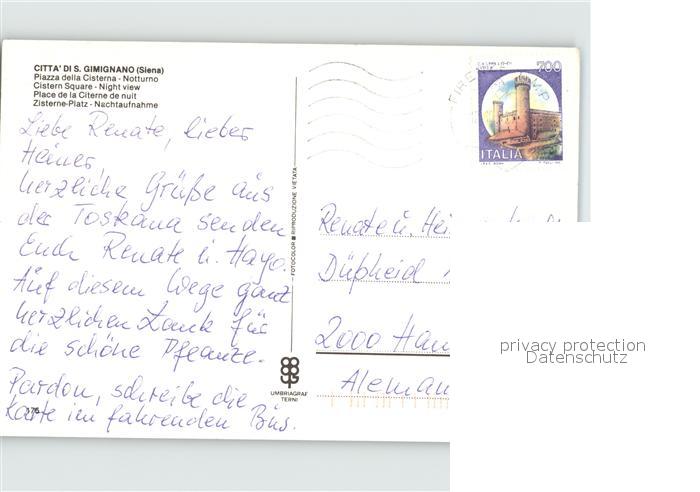 CITTA' DI S. GIMIGNANO (Siena)
Piazza della Cisterna - Notturno
Cistern Square - Night view
Place de la Citerne de nuit
Zisterne-Platz - Nachtaufnahme
Liebe Renate, lieber
Heiner,
herzliche Grüße aus
der Toskana senden
Euch Renate u. Hayo.
Auf diesem Wege ganz
herzlichen Dank für
die schöne Pflanze.
Pardon, schreibe die
Karte im fahrenden Bus.
176
FOTOCOLOR ■ RIPRODUZIONE VIETATA
UMBRIAGRAF
TERNI
700
ITALIA
Renate u. Hei
2000 Ham
Aleman
privacy protection
Datenschutz